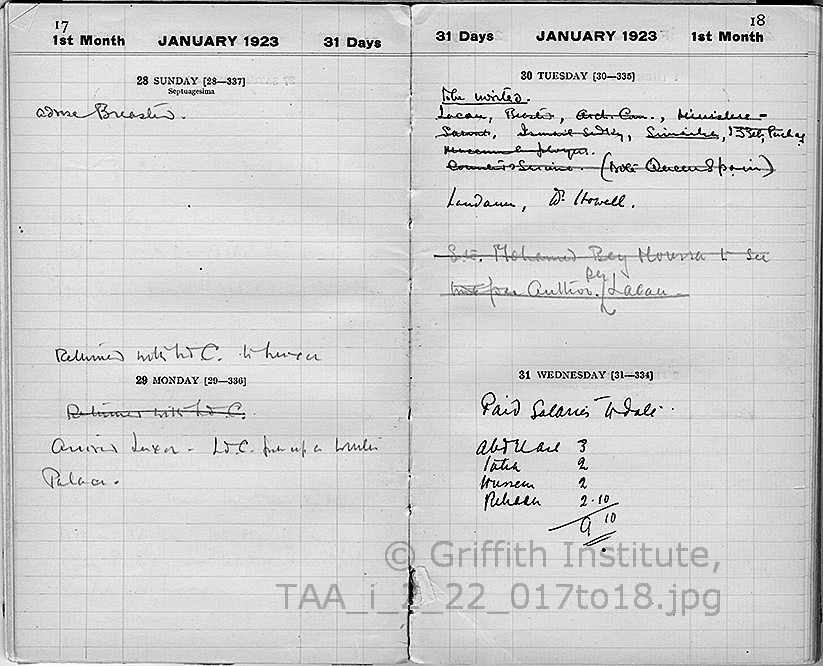 17
1st Month JANUARY 1923 31 Days
28 SUNDAY [28—337]
Septuagesima
advise Breasted.
Returned with Ld C. to Luxor
29 MONDAY [29—336]
Returned with Ld C.
Arrived Luxor - Ld. C. put up at Winter
Palace.
18
31 Days JANUARY 1923 1st Month
30 TUESDAY [30—335]
To be invited.
Lacau, Breasted, Arch. Com., Ministere -
Sarwat, Ismail Sidky, Pachas
Museum Employees.
(Bolt Queen Spain)
Landauer, Dr. Howell.
S.E. Mohamed Bey Moussa to see
tomb per Author. by Lacau
31 WEDNESDAY [31—334]
Paid Salaries to date.
Abd el Aal 3
2
Hussein 2
Rehaan 2.10
9 10
© Griffith Institute,
TAA_i_2_22_017to18.jpg